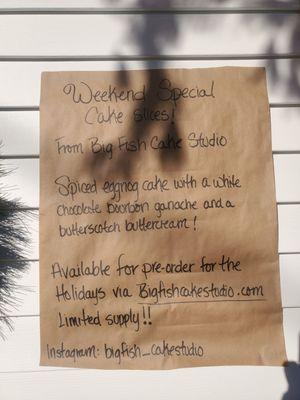 Weekend Special
Cake slices!
From Big Fish Cake Studio
Spiced eggnog cake with a white
chocolate bourbon ganache and a
butterscotch buttercream!
Available for pre-order for the
Holidays via Bigfishcakestudio.com
Limited supply!!
Instagram: bigfish_cakestudio